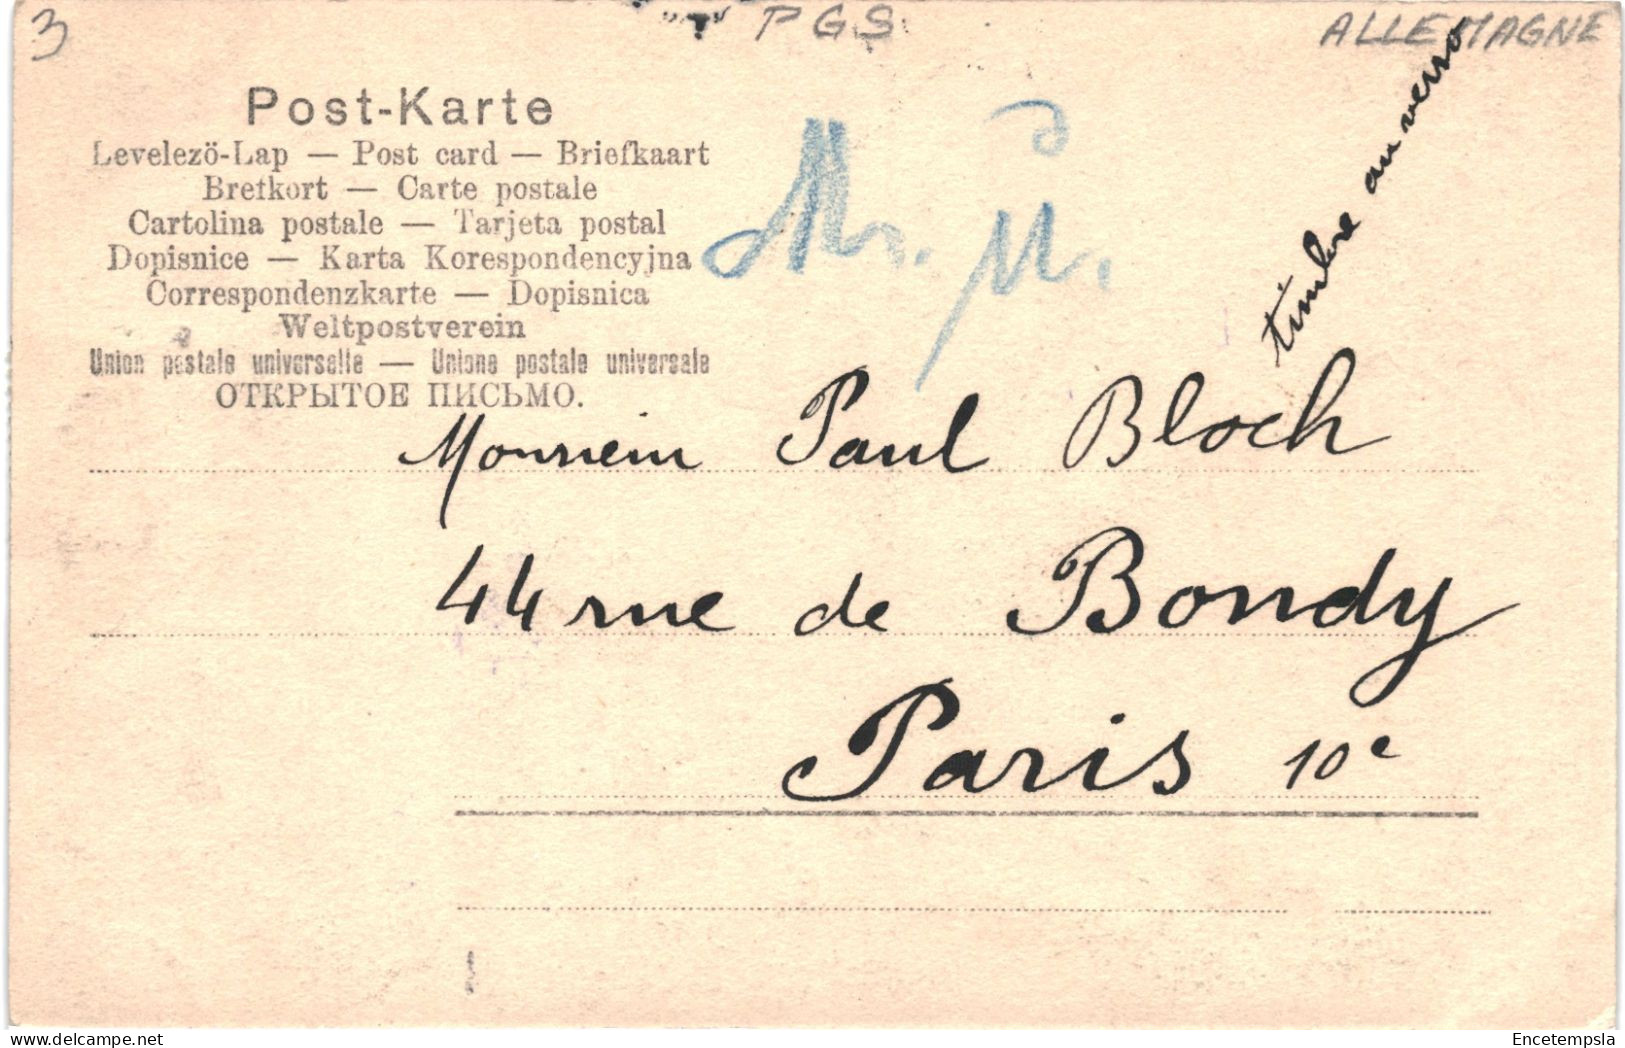 3
PGS
ALLEMAGNE
Post-Karte
Levelezö-Lap — Post card — Briefkaart
Brefkort — Carte postale
Cartolina postale — Tarjeta postal
Dopisnice — Karta Korespondencyjna
Correspondenzkarte — Dopisnica
Weltpostverein
Union postale universelle — Unione postale universale
ОТКРЫТОЕ ПИСЬМО.
timbre au verso
Monsieur Paul Bloch
44 rue de Bondy
Paris 10e
Encetempsla